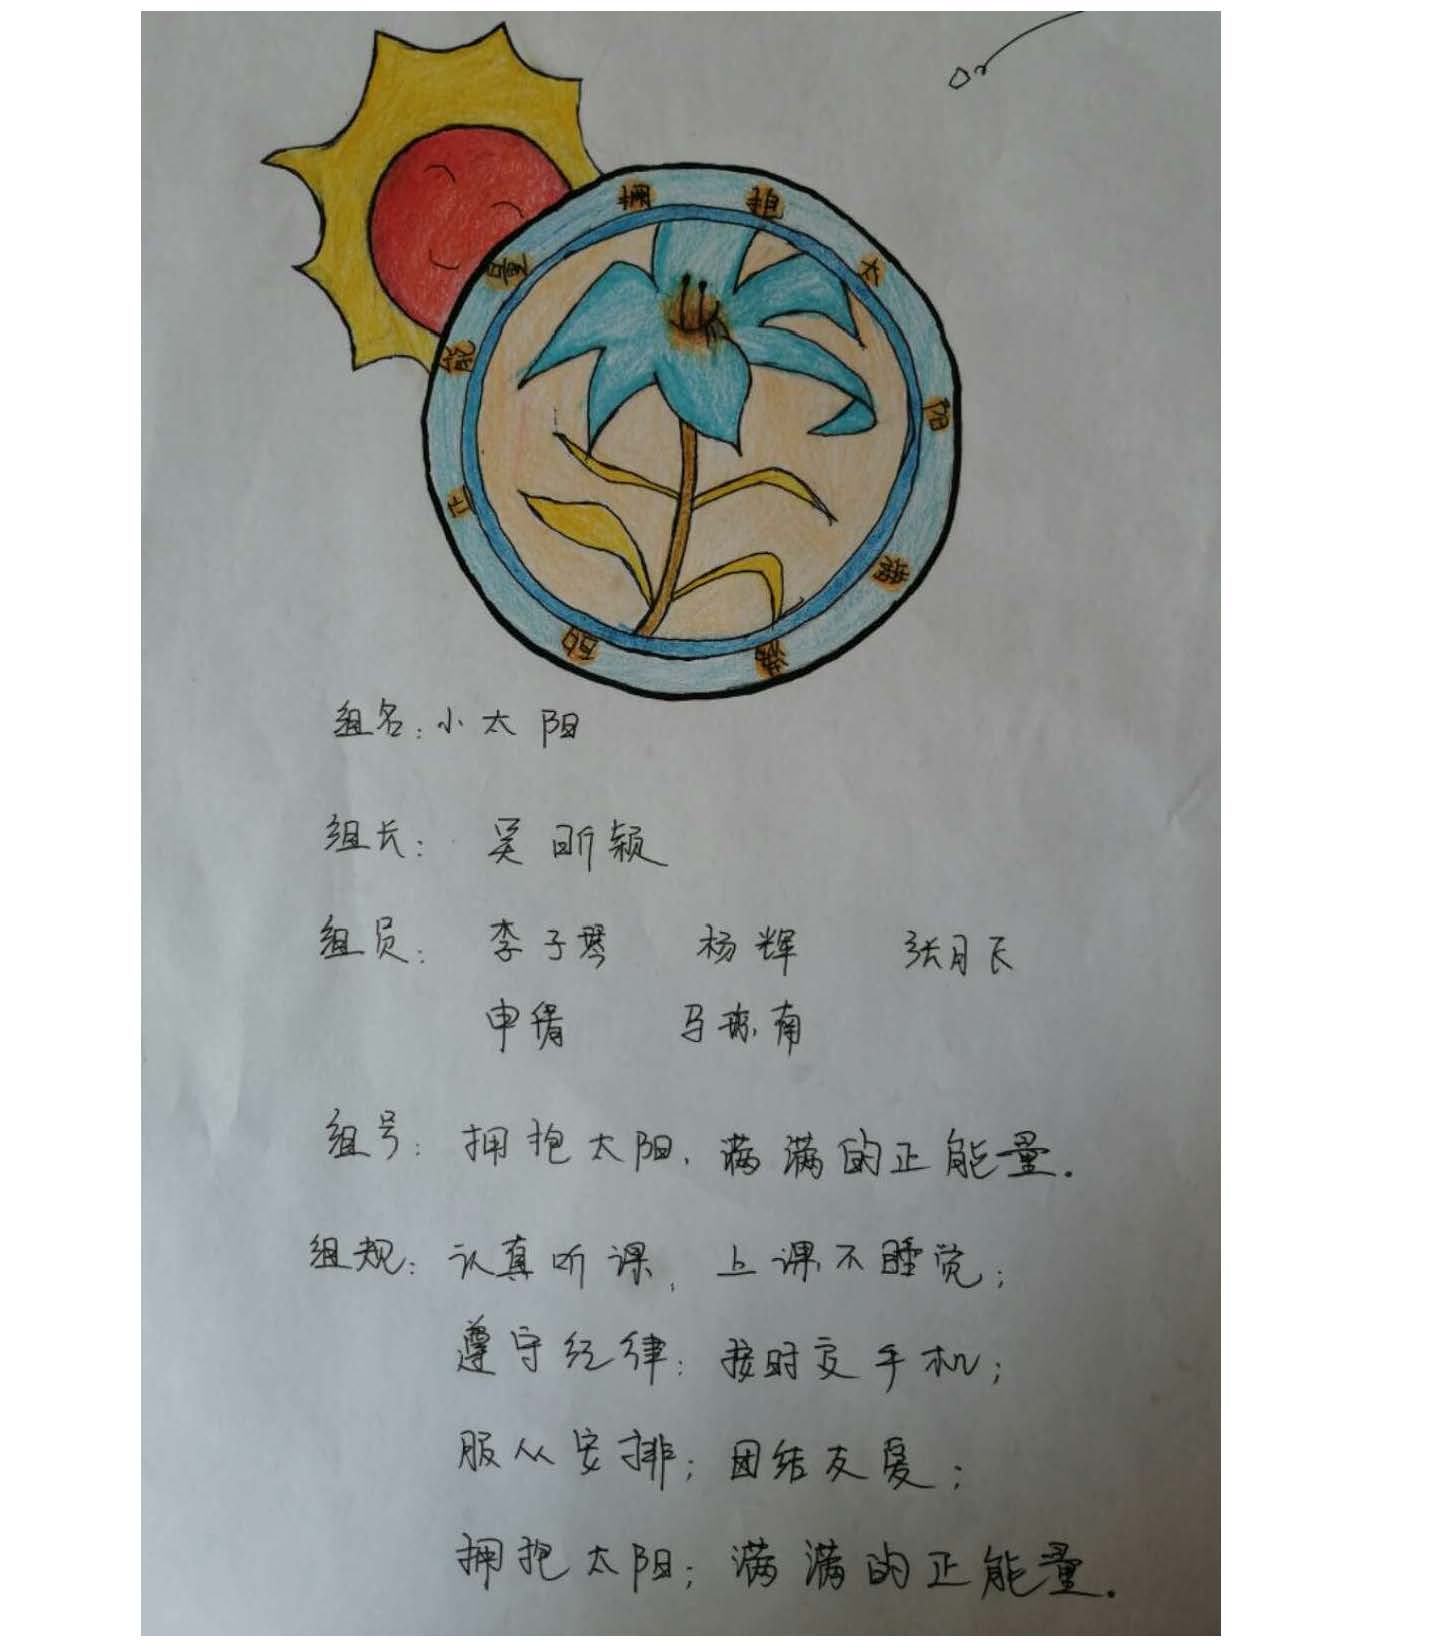 拥抱太阳满满的正能量
组名：小太阳
组长： 吴昕颖
组员： 李子琴 杨辉 张月辰
申倩 马琼南
组号：拥抱太阳、满满的正能量.
组规：认真听课，上课不睡觉；
遵守纪律；按时交手机；
服从安排；团结友爱；
拥抱太阳；满满的正能量.